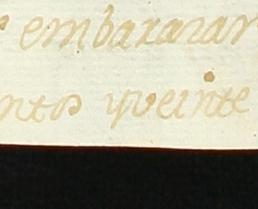 embaxaxar
ntos yveinte